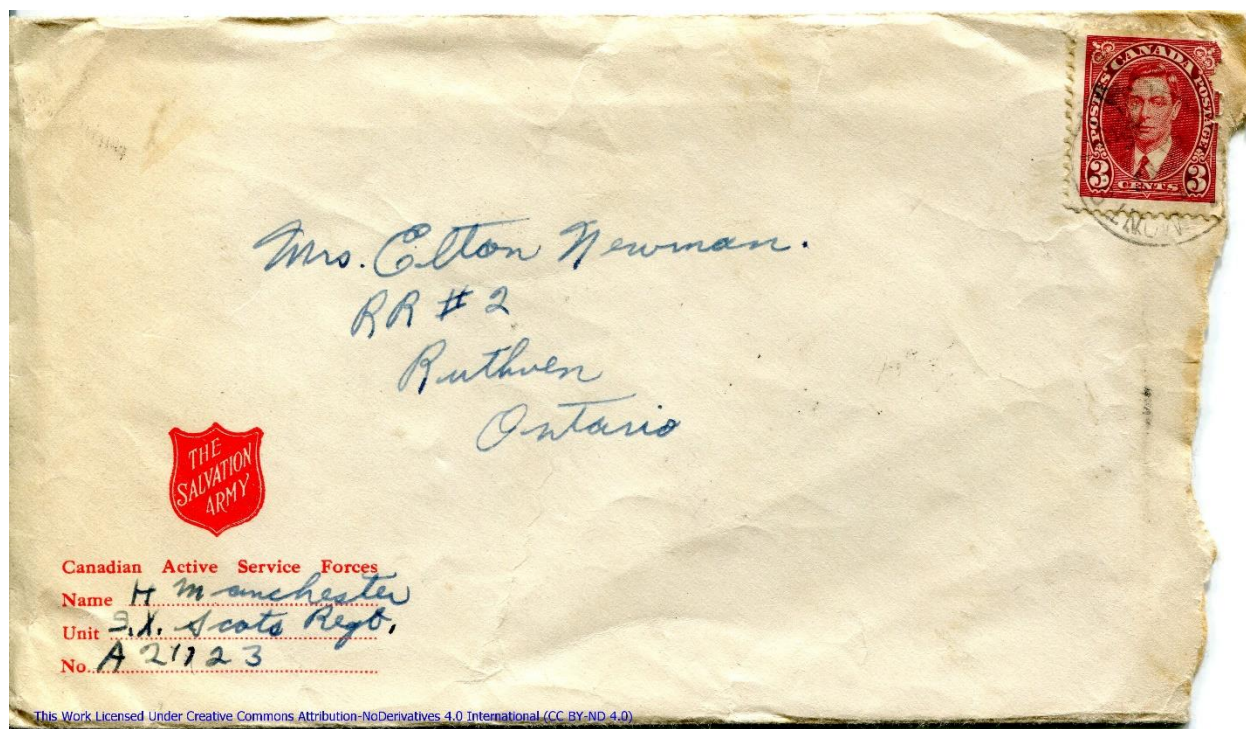 POSTES CANADA POSTAGE
3 CENTS 3
ONT
Mrs. Elton Newman.
RR # 2
Ruthven
Ontario
THE
SALVATION
ARMY
Canadian Active Service Forces
Name H Manchester
Unit Scots Regt.
No. A 21123
This Work Licensed Under Creative Commons Attribution-NoDerivatives 4.0 International (CC BY-ND 4.0)